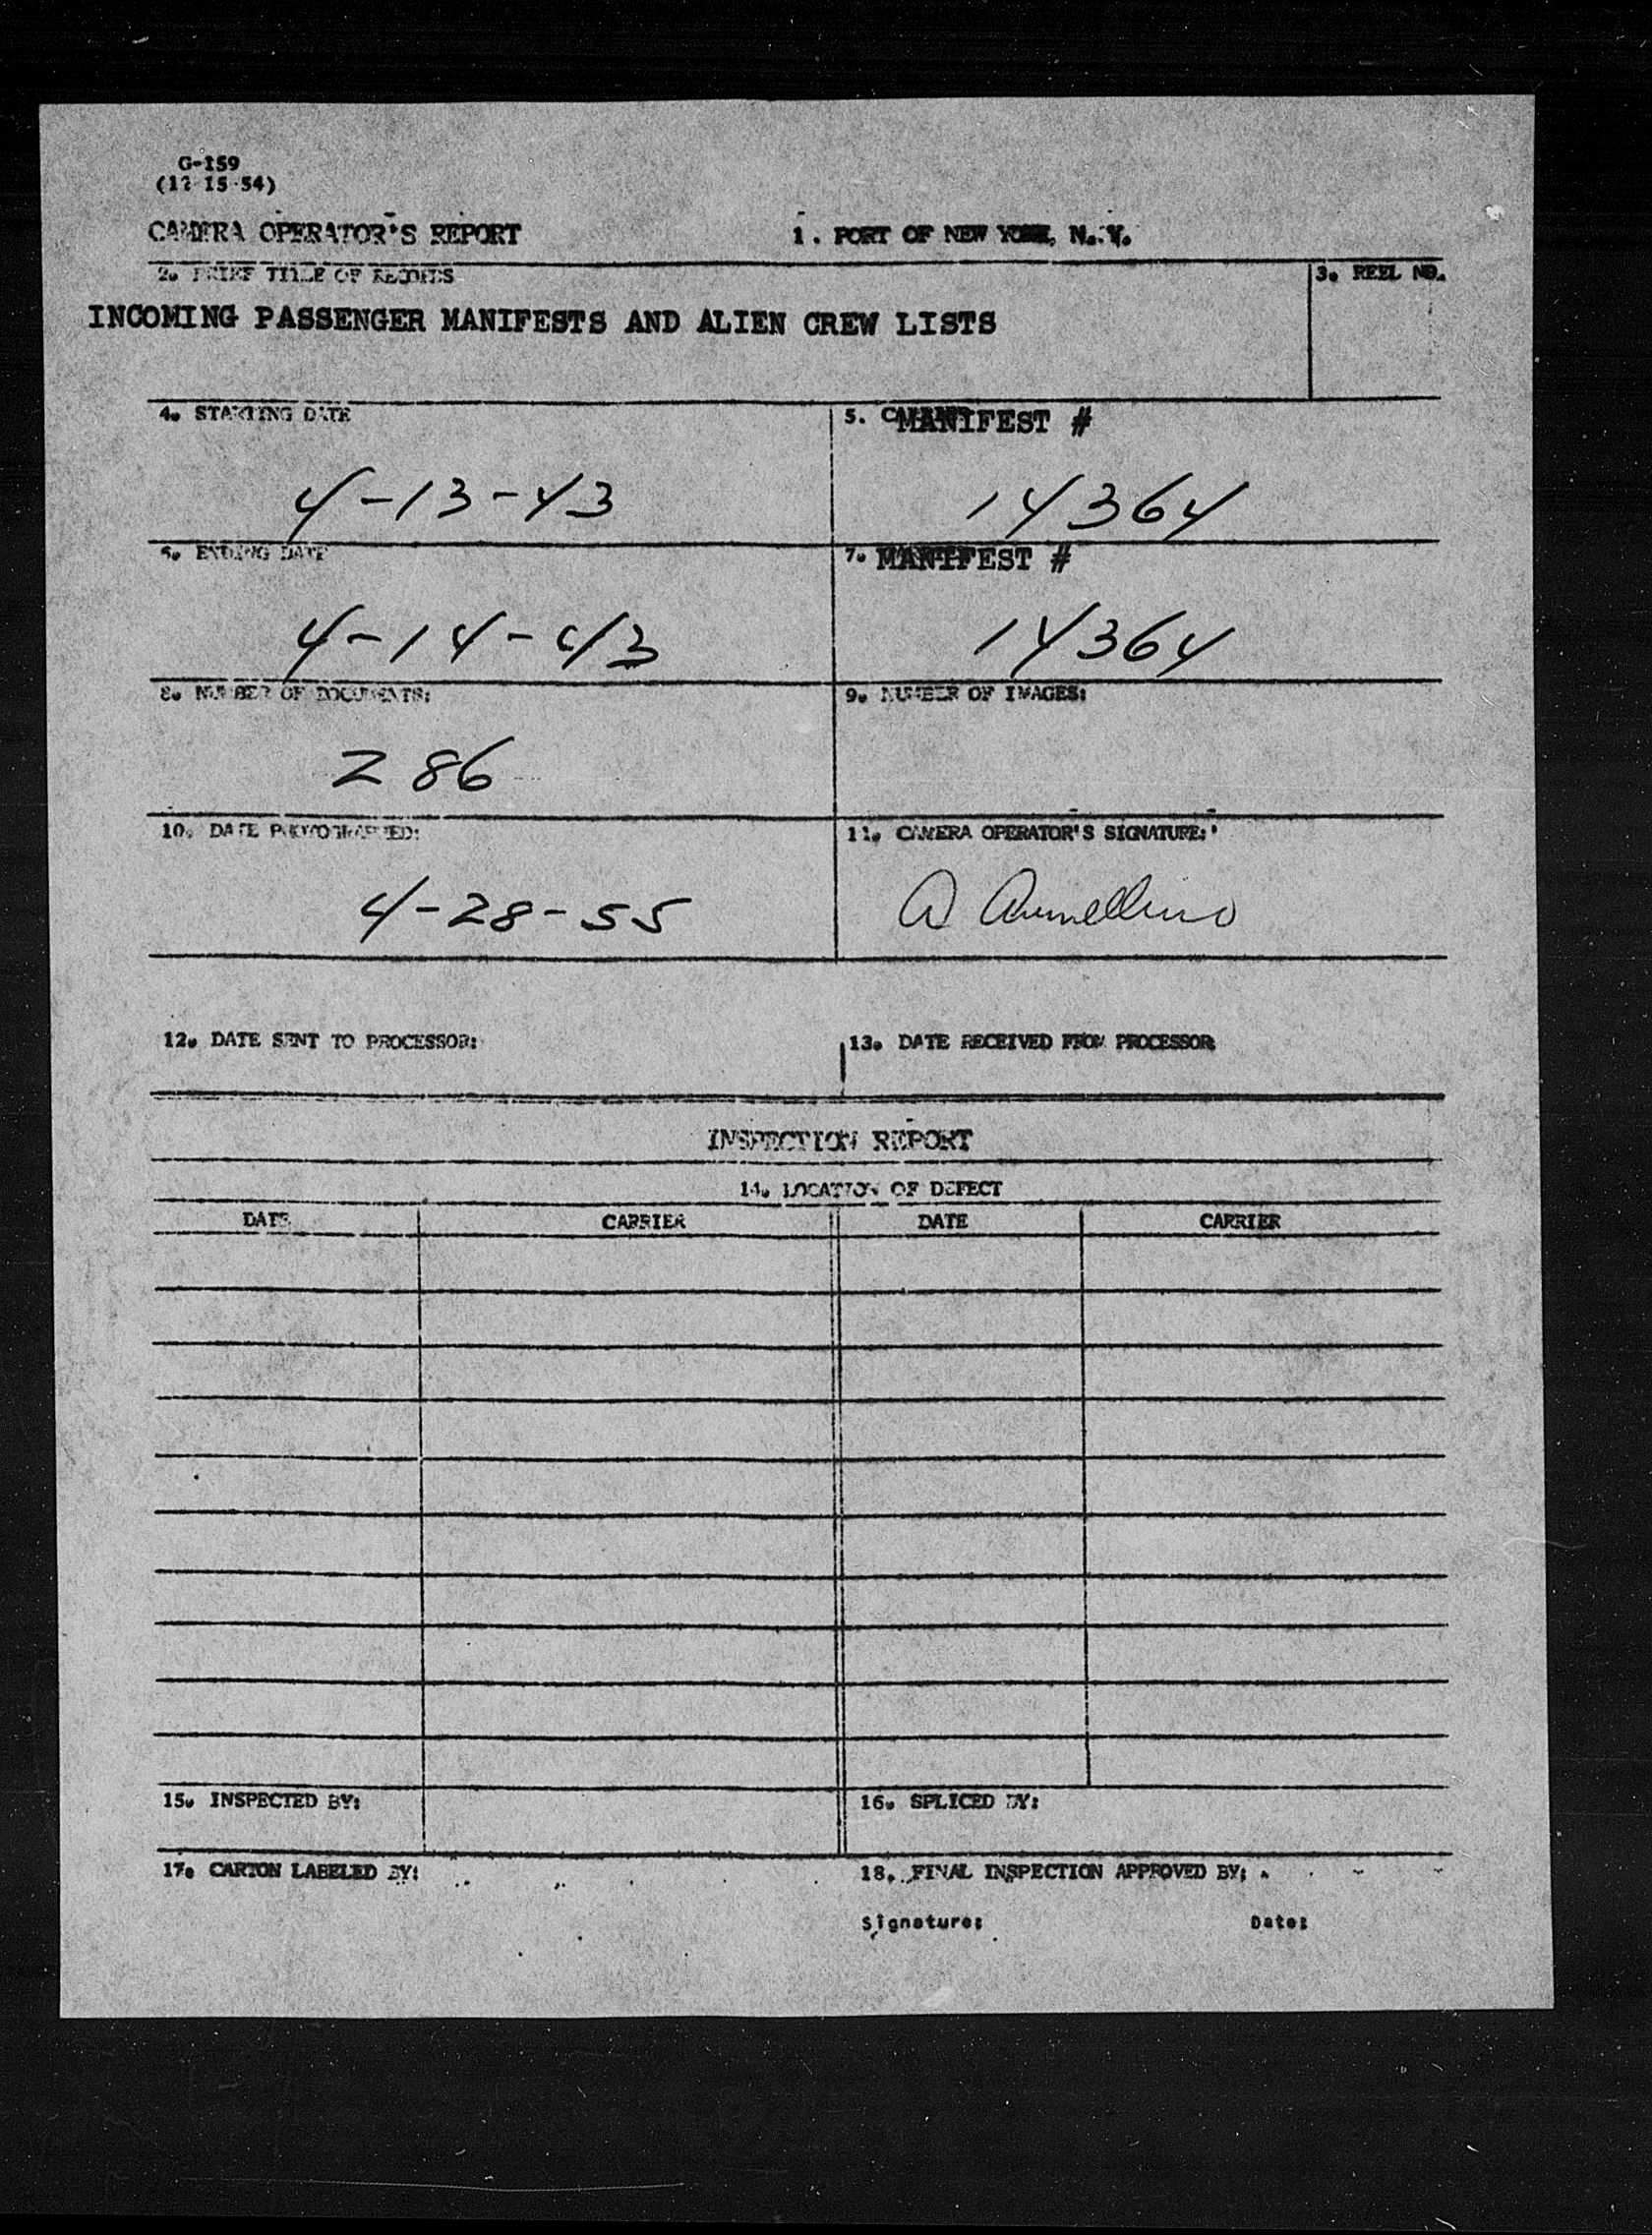 G-159
(12-15-54)
CAMERA OPERATOR'S REPORT 1. PORT OF NEW YORK, N.Y.
2. BRIEF TITLE OF RECORDS 3. REEL NO.
INCOMING PASSENGER MANIFESTS AND ALIEN CREW LISTS
4. STARTING DATE 5. MANIFEST #
4-13-43 14364
6. ENDING DATE 7. MANIFEST #
4-14-43 14364
8. NUMBER OF DOCUMENTS: 9. NUMBER OF IMAGES:
286
10. DATE PHOTOGRAPHED: 11. CAMERA OPERATOR'S SIGNATURE:
4-28-55 A
12. DATE SENT TO PROCESSOR: 13. DATE RECEIVED FROM PROCESSOR
INSPECTION REPORT
14. LOCATION OF DEFECT
DATE CARRIER DATE CARRIER
15. INSPECTED BY: 16. SPLICED BY:
17. CARTON LABELED BY: 18. FINAL INSPECTION APPROVED BY:
Signature: Date: